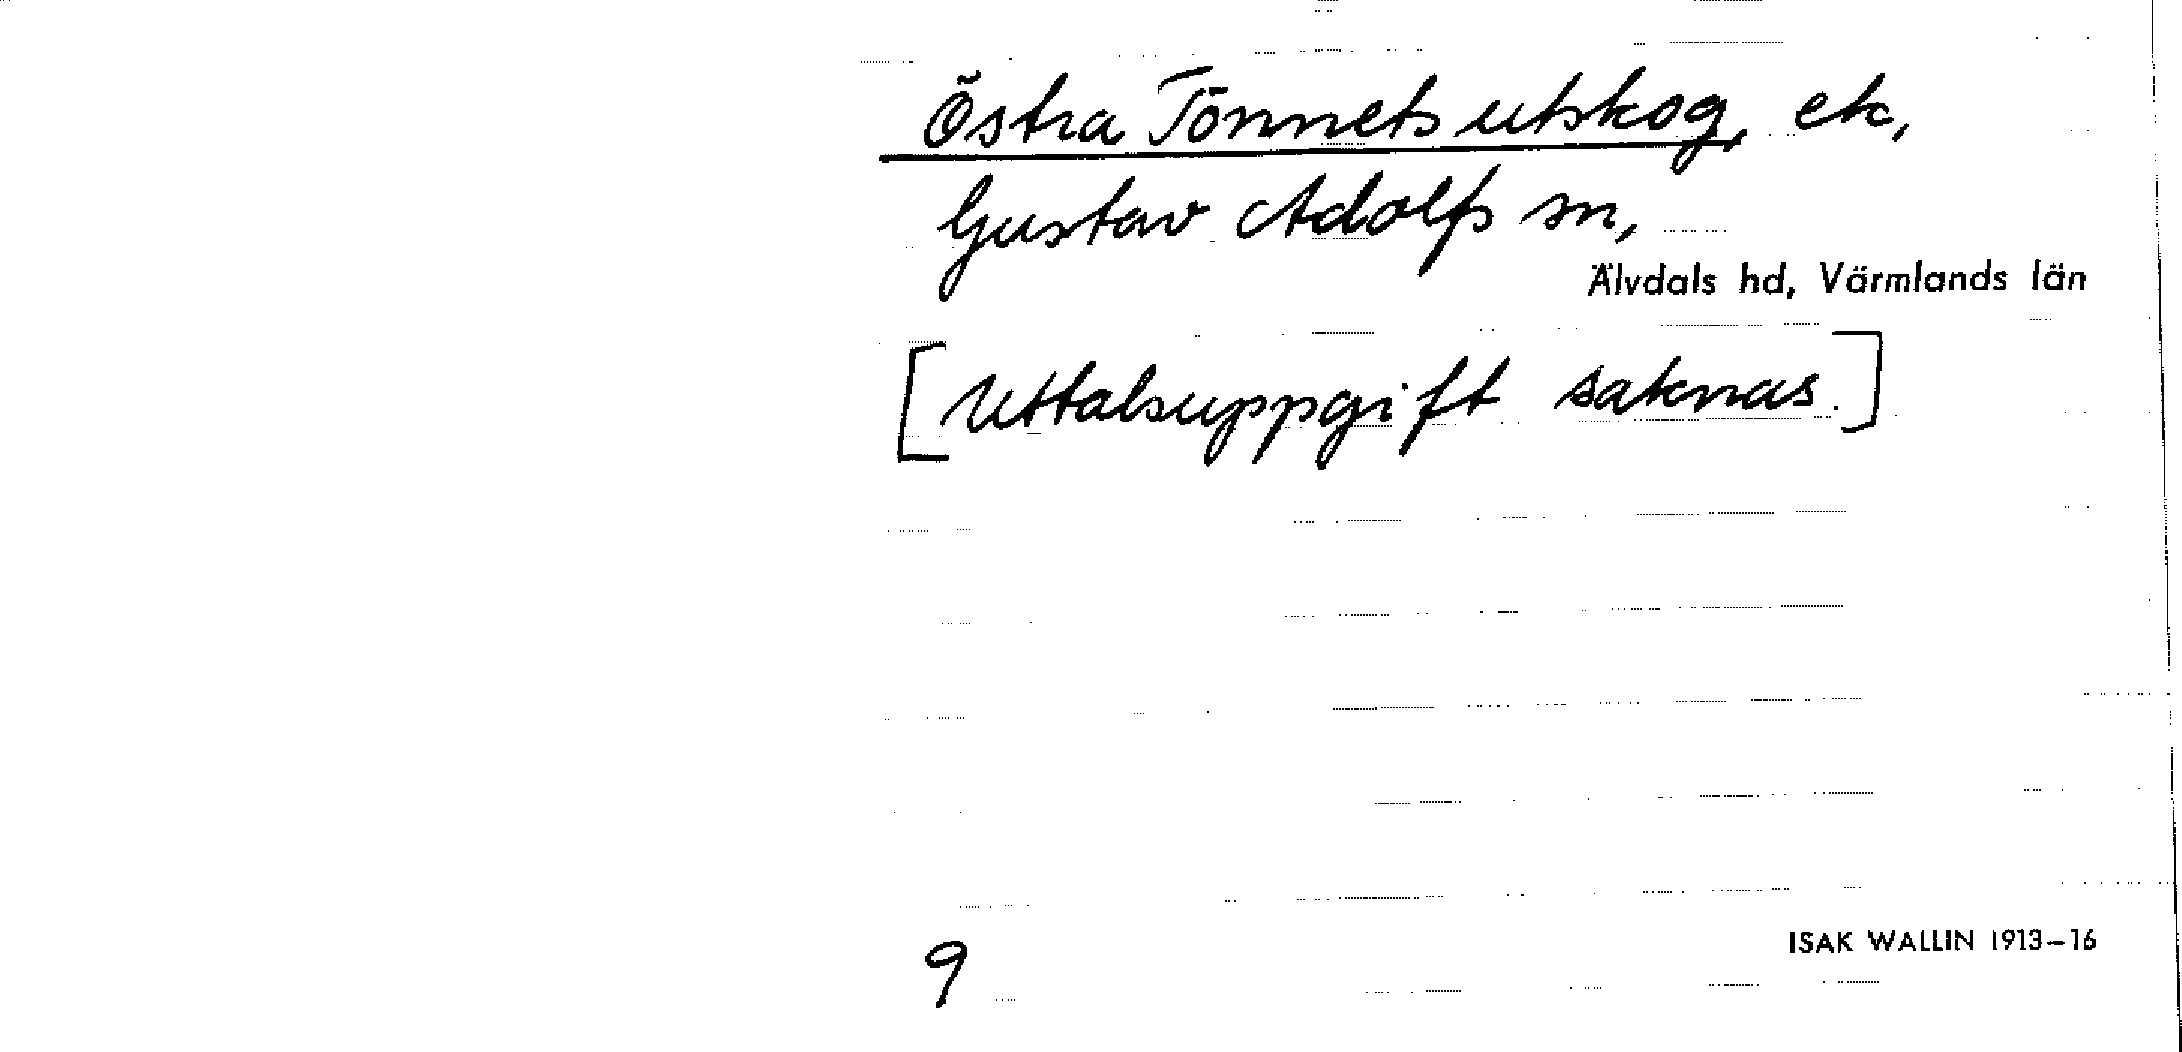 Östra Tönnets utskog, ek,
Gustav Adolfs sn,
Älvdals hd, Värmlands län
[Uttalsuppgift saknas.]
9
ISAK WALLIN 1913–16